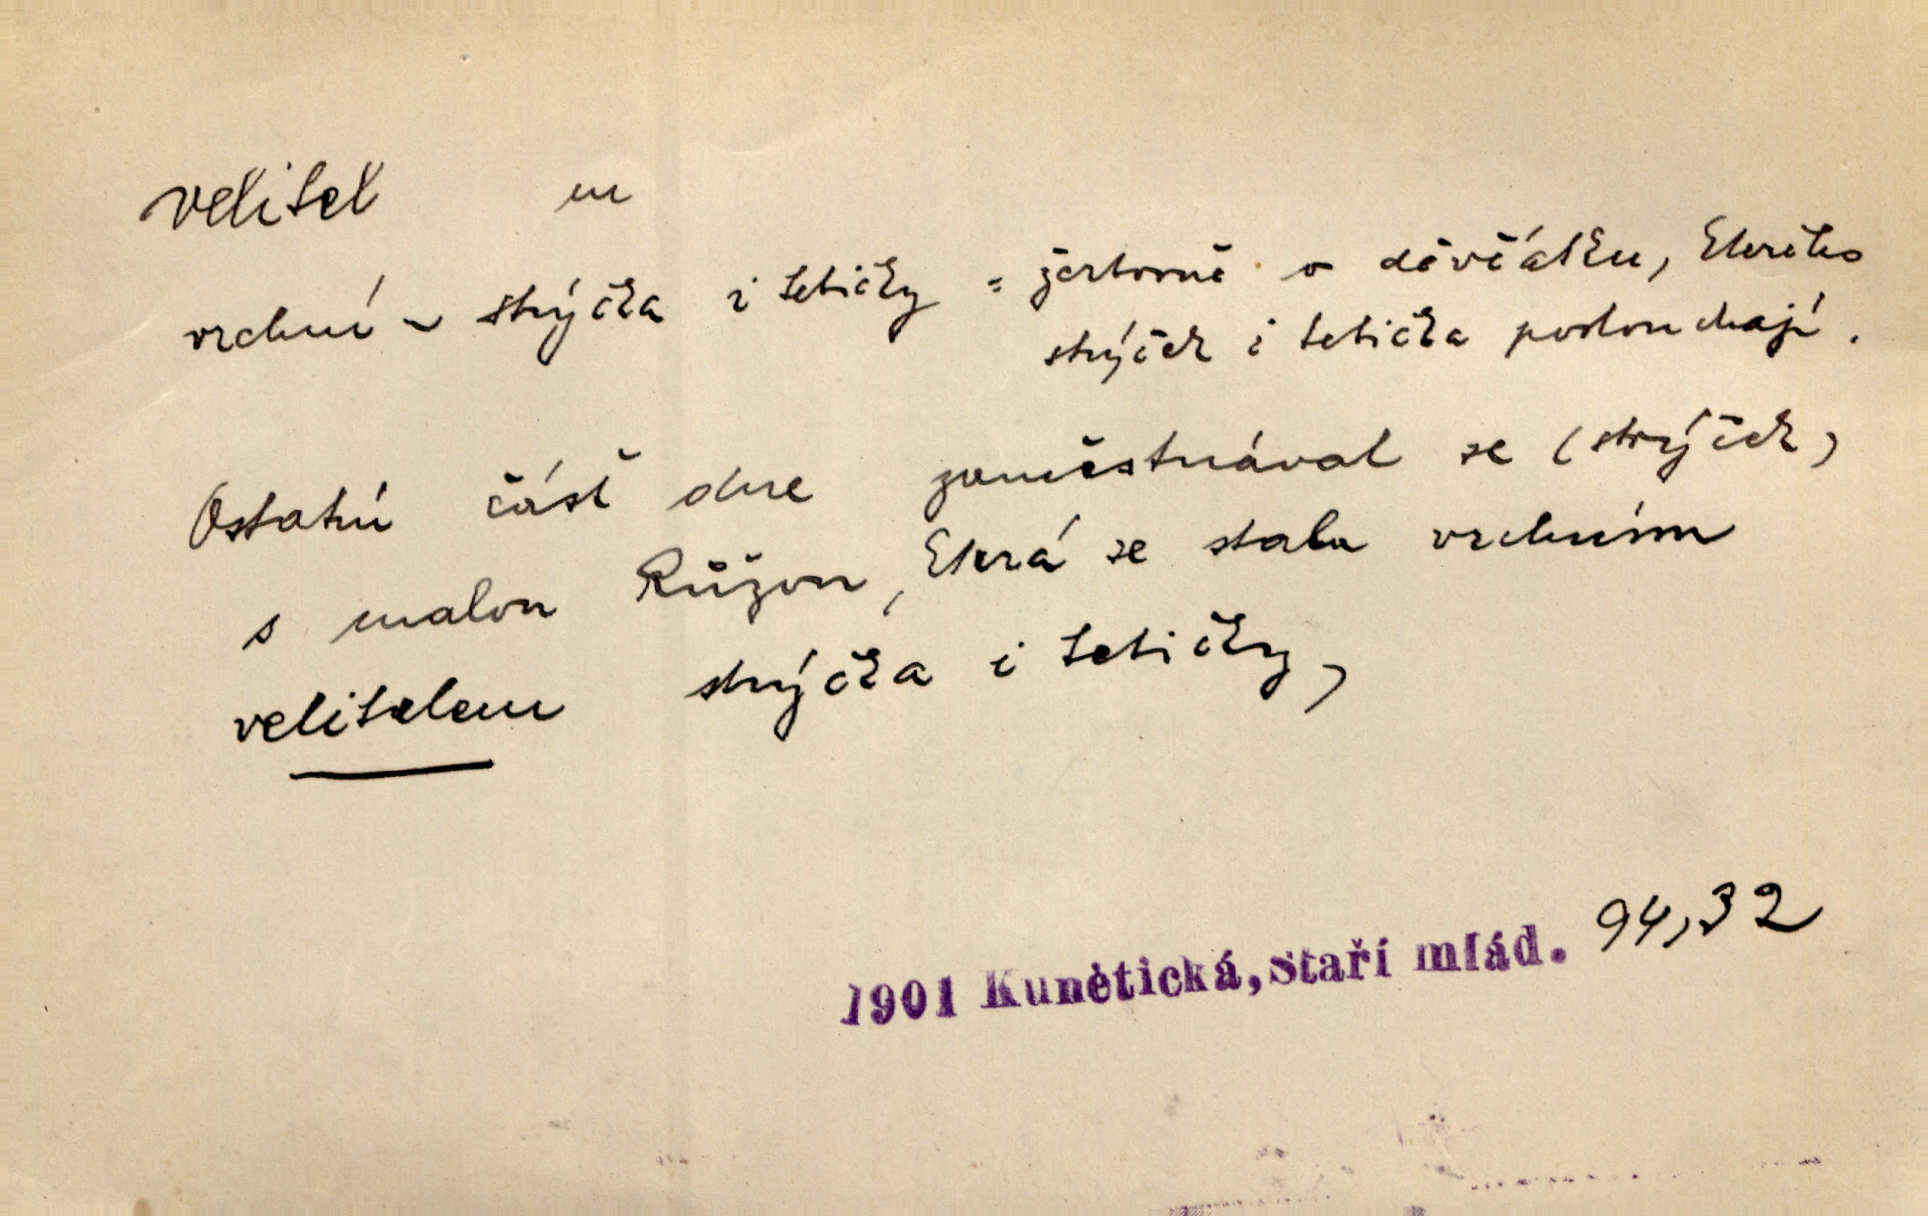 velitel m
vrchní ~ strýčka i tetičky = žertovně o děvčátku, kterého
strýček i tetička poslouchají.
Ostatní část dne zaměstnával se (strýček)
s malou Růžou, která se stala vrchním
velitelem strýčka i tetičky,
1901 Kunětická, Staří mlád. 94,32